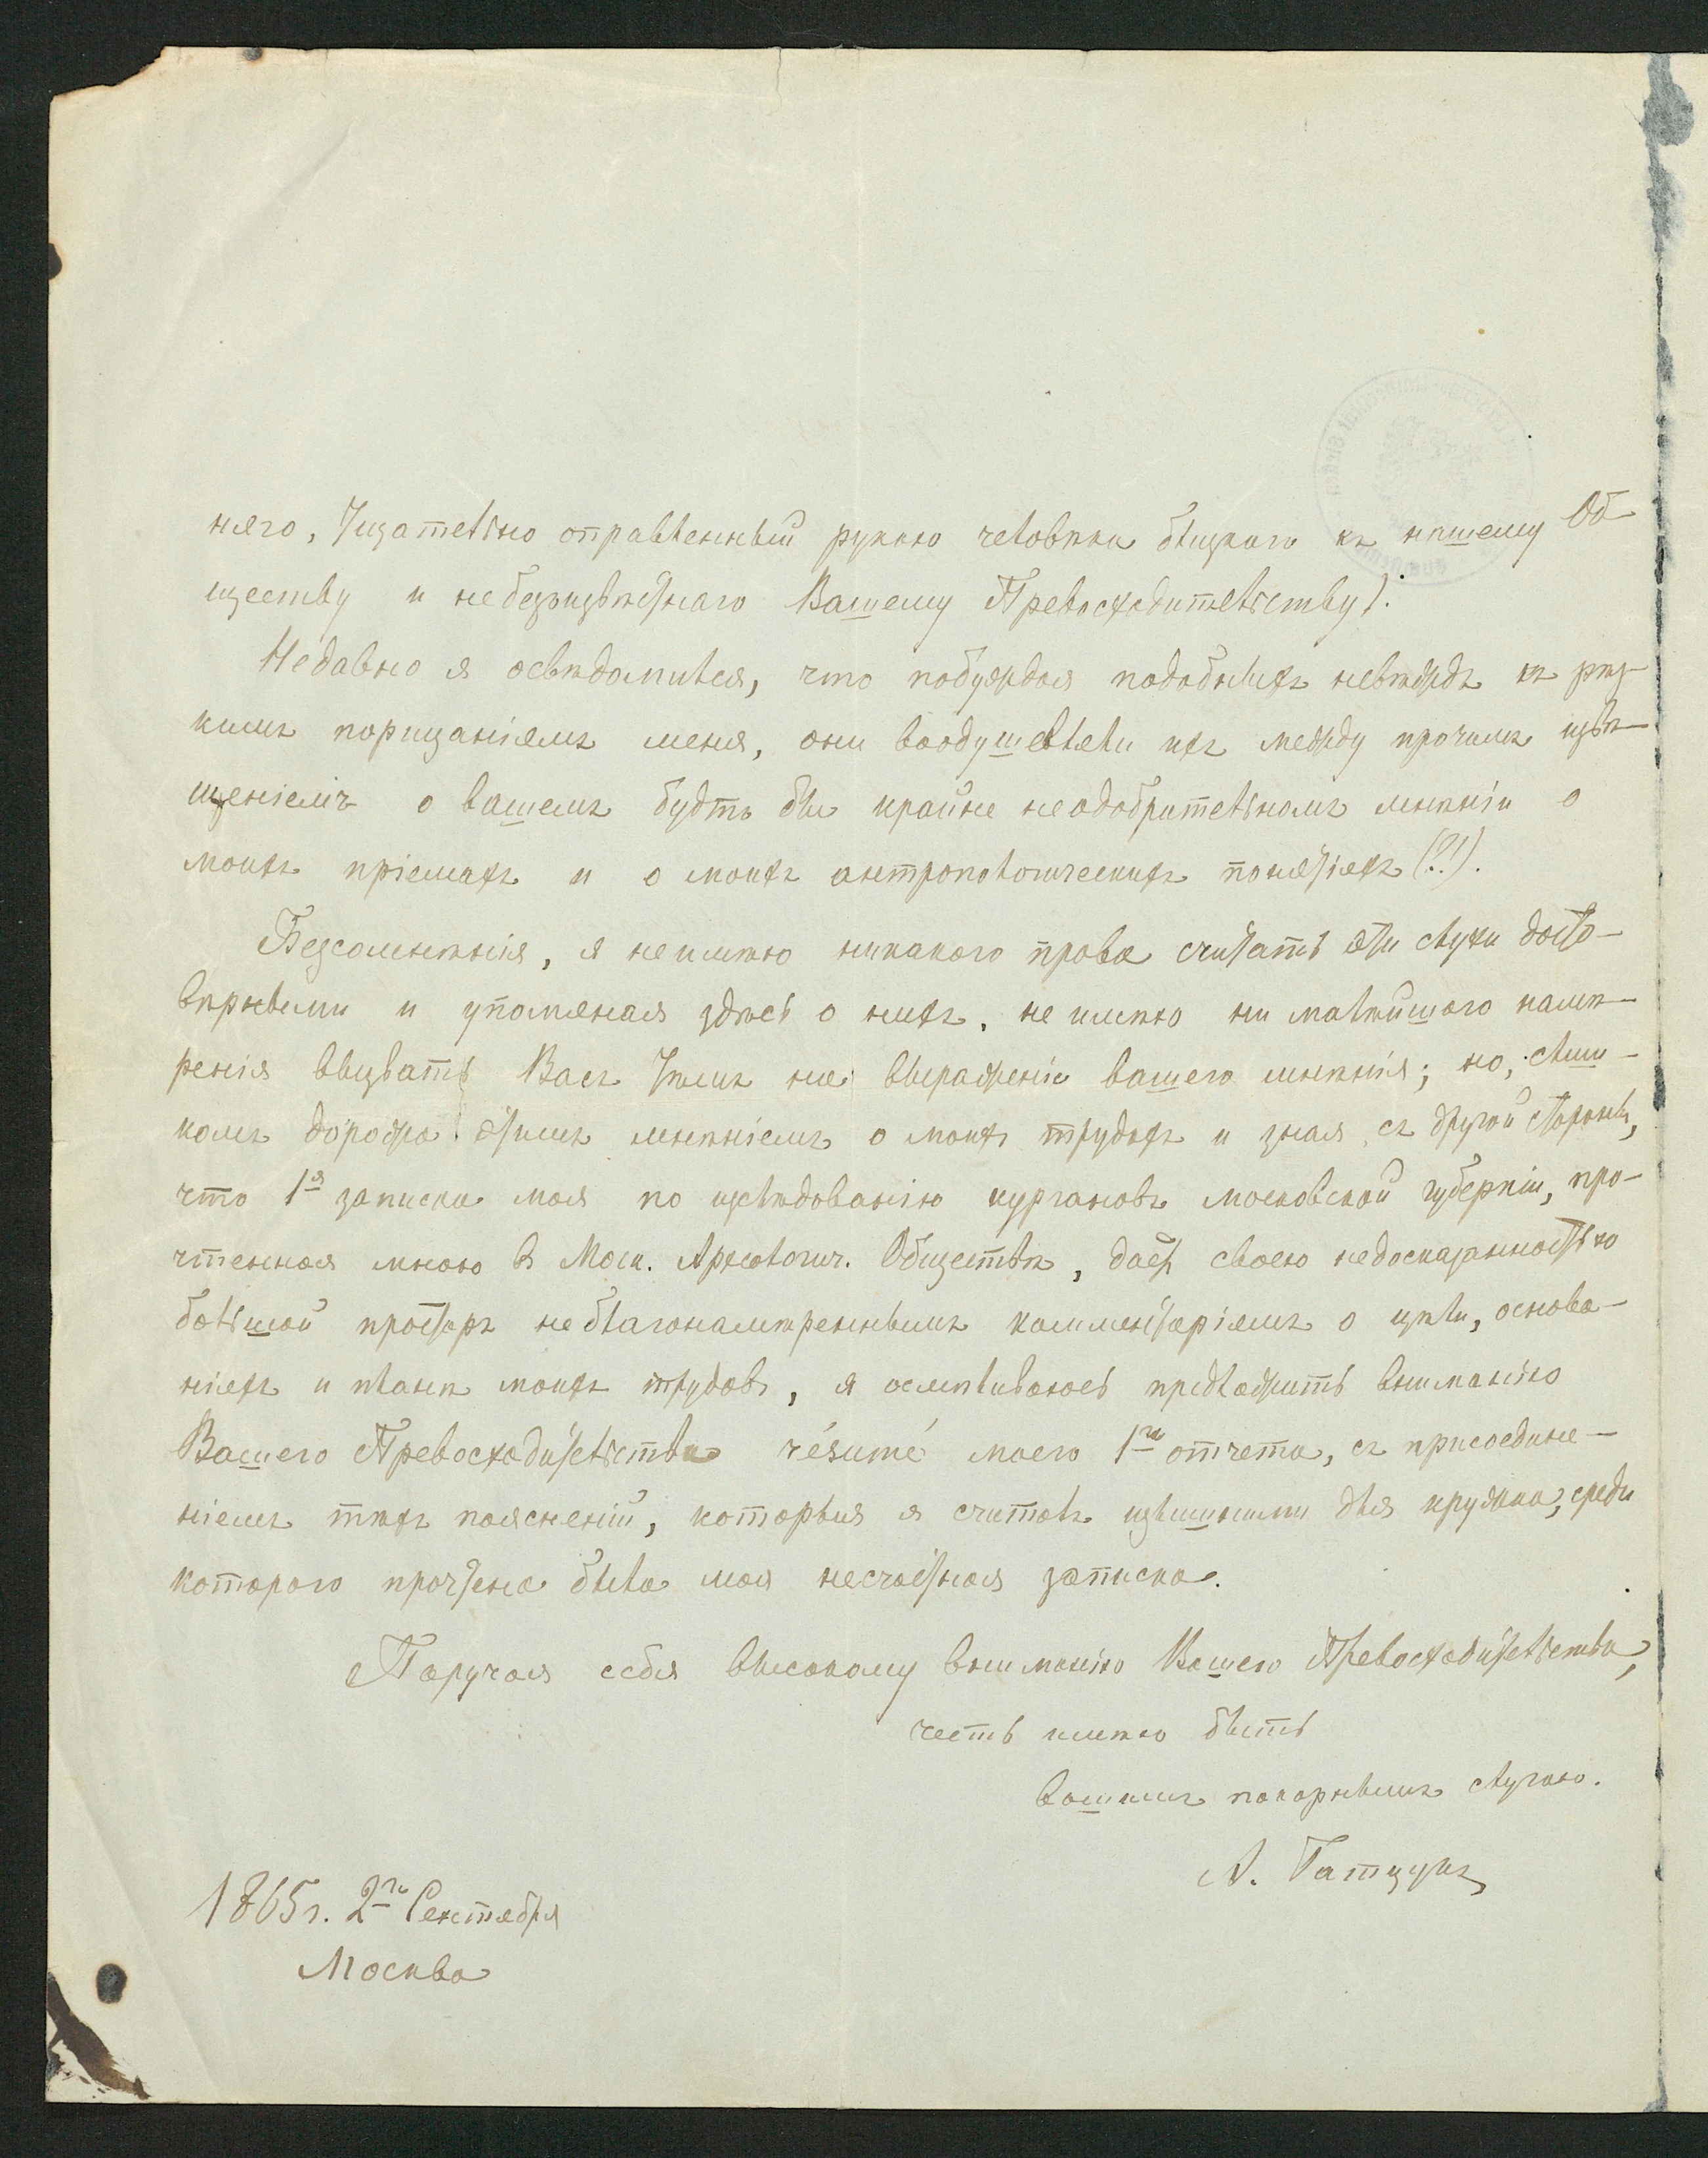 няго, тщательно оправленный рукою человѣка близкаго къ нашему Об
ществу и небезъизвѣстнаго Вашему Превосходительству).
Недавно я освѣдомился, что побуждая подобныхъ невѣждъ къ рѣз-
кимъ порицаніямъ меня, они воодушевляли ихъ между прочимъ извѣ-
щеніемъ о вашемъ будтъ бы крайне неодобрительномъ мнѣніи о
моихъ пріемахъ и о моихъ антропологическихъ понятіяхъ (?!).
Безсомнѣнія, я не имѣю никакого права считать эти слухи досто-
вѣрными и упоминая здѣсь о нихъ, не имѣю ни малѣйшаго намѣ-
ренія вызвать Васъ тѣмъ на выраженіе вашего мнѣнія; но, слиш-
комъ дорожа этимъ мнѣніемъ о моихъ трудахъ и зная, съ другой стороны,
что 1я записка моя по изслѣдованію кургановъ московской губерніи, про-
чтенная мною въ Моск. Археологич. Обществѣ, даетъ своею недосказанностью
большой просторъ неблагонамѣреннымъ комментаріямъ о цѣли, основа-
ніяхъ и планѣ моихъ трудовъ, я осмѣливаюсь предложить вниманію
Вашего Превосходительства résumé моего 1го отчета, съ присоедине-
ніемъ тѣхъ поясненій, которыя я считалъ излишними для кружка, среди
котораго прочтена была моя несчастная записка.
Поручая себя высокому вниманію Вашего Превосходительства,
честь имѣю быть
вашимъ покорнымъ слугою.
А. Гатцукъ
1865 г. 2го Сентября
Москва